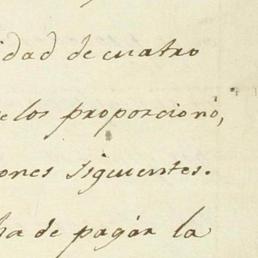 idad de cuatro
e los proporcionó,
ones siguientes.
ha de pagár la